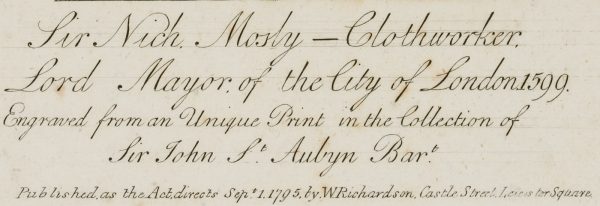 Sir Nich. Mosly — Clothworker.
Lord Mayor, of the City of London 1599.
Engraved from an Unique Print in the Collection of
Sir John St. Aubyn Bart.
Published, as the Act, directs Sept. 1. 1795, by, W. Richardson, Castle Street, Leicester Square.